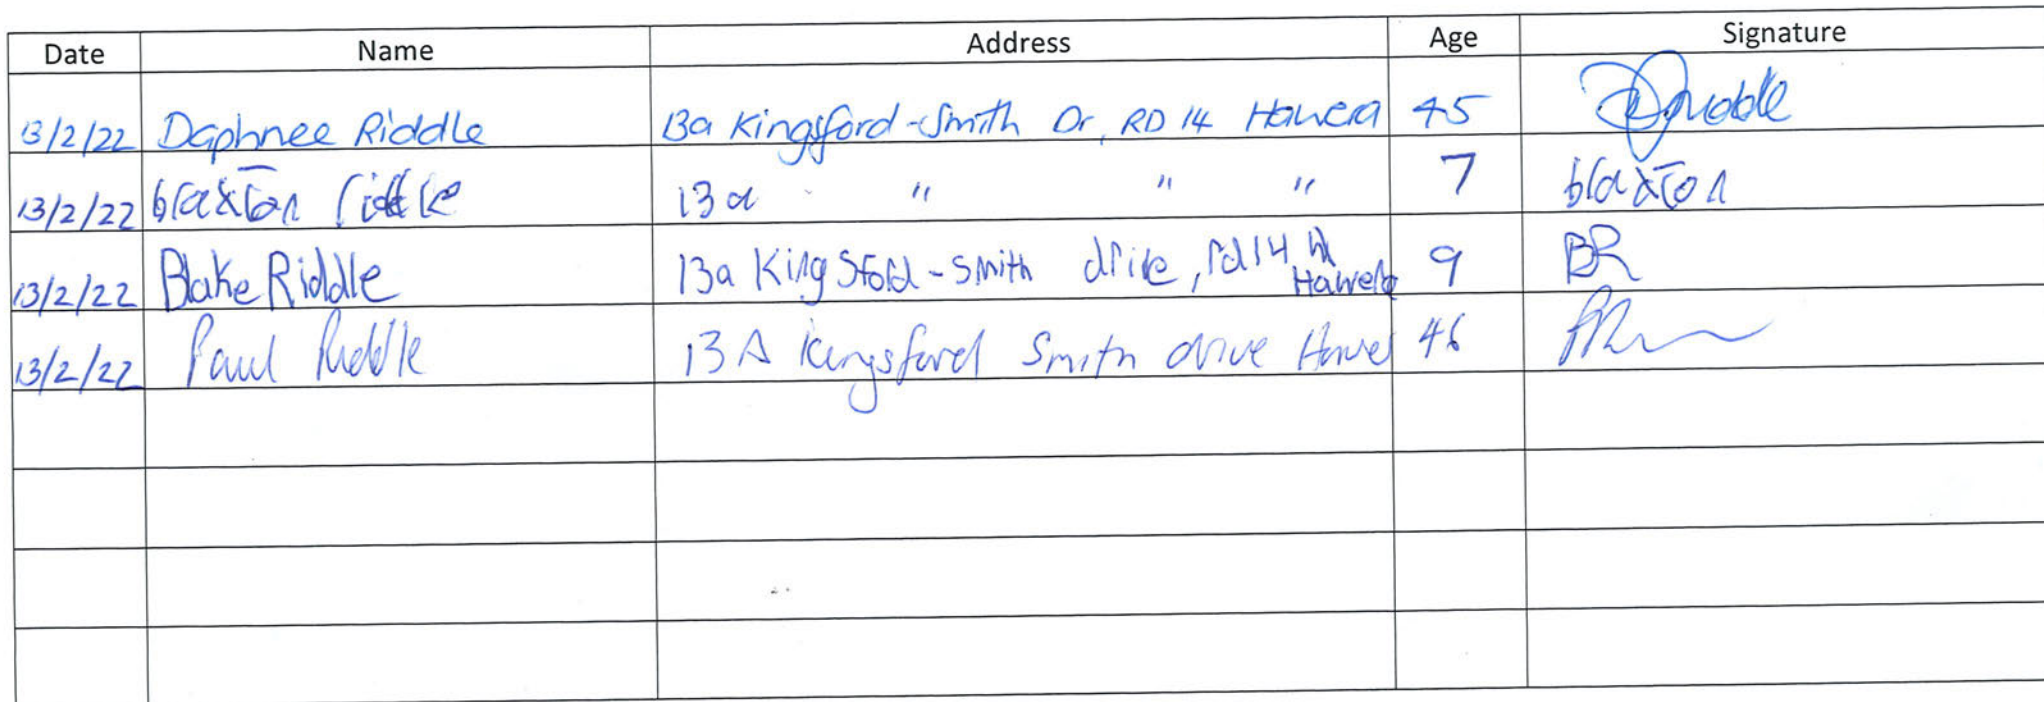 Date Name Address Age Signature
13/2/22 Daphnee Riddle 13a Kingsford-Smith Dr, RD 14 Hawera 45 DRiddle
13/2/22 braxton riddle 13a " " " 7 braxton
13/2/22 Blake Riddle 13a Kingsford-Smith drive, rd 14 Hawera 9 BR
13/2/22 Paul Riddle 13A Kingsford Smith drive Hawe 46